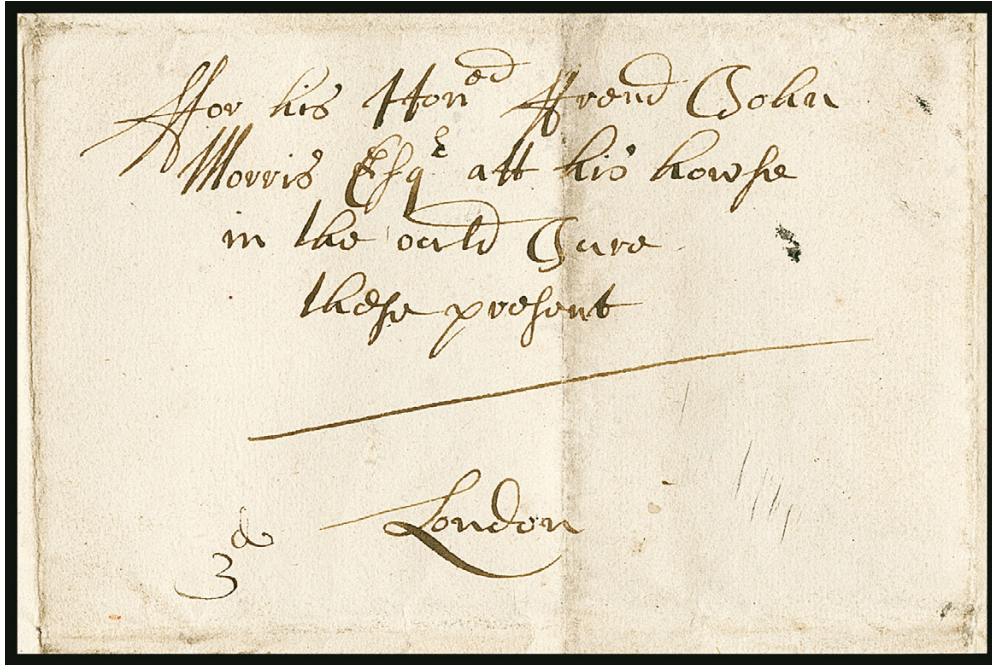 ffor his Hon^ed ffrend John
Morris Esq^r att his howse
in the ould Jure
these present
London
3^d